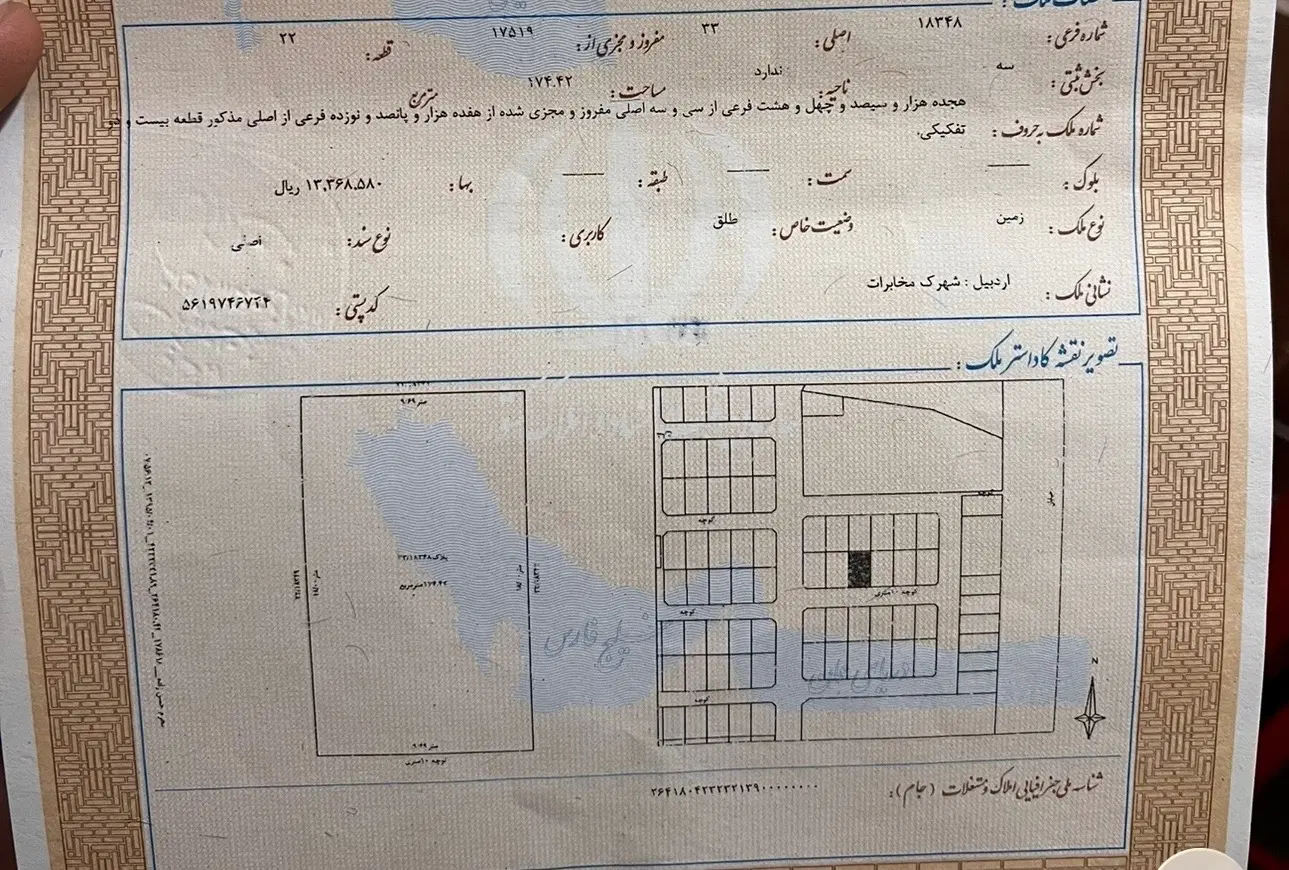 شماره فرعی: ۱۸۳۴۸ اصلی: ۳۳ مفروز و مجزی از: ۱۷۵۱۹ قطعه: ۲۲
بخش ثبتی: سه ناحیه: ندارد مساحت: ۱۷۴.۴۲ مترمربع
شماره ملک به حروف: هجده هزار و سیصد و چهل و هشت فرعی از سی و سه اصلی مفروز و مجزی شده از هفده هزار و پانصد و نوزده فرعی از اصلی مذکور قطعه بیست و دو
تفکیکی.
بلوک: سمت: طبقه: بها: ۱۳,۳۶۸,۵۸۰ ریال
نوع ملک: زمین وضعیت خاص: طلق کاربری: نوع سند: اصلی
نشانی ملک: اردبیل : شهرک مخابرات کد پستی: ۵۶۱۹۷۴۶۷۲۴
تصویر نقشه کاداستر ملک:
متر ۹/۶۹
پلاک ۳۳/۱۸۳۴۸
۱۷۴.۴۲ مترمربع
متر ۹/۶۹
کوچه ۱۰ متری
کوچه
کوچه
کوچه
کوچه
کوچه ۱۰ متری
خیابان
خلیج فارس
دریای عمان
N
شناسه ملی جغرافیایی املاک و مستغلات (جام): ۲۶۴۱۸۰۴۲۳۲۳۲۱۳۹۰۰۰۰۰۰۰۰